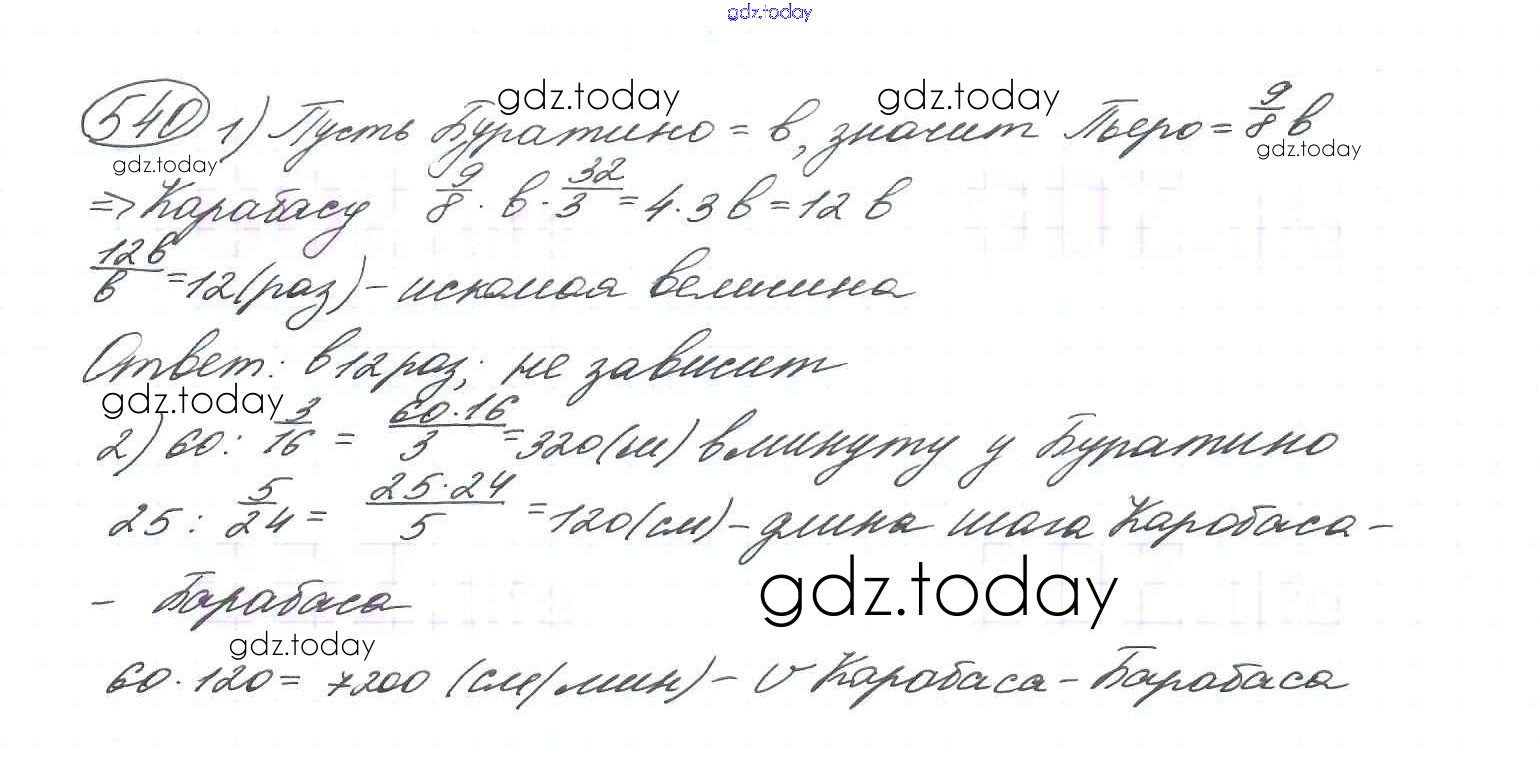 gdz.today
gdz.today gdz.today
540 1) Пусть Буратино = в, значит Пьеро = 9/8 в
gdz.today gdz.today
=> Карабасу 9/8 · в · 32/3 = 4·3в = 12 в
12в/в = 12(раз) - искомая величина
Ответ: в 12 раз; не зависит
gdz.today
2) 60 : 3/16 = 60·16/3 = 320(ш) в минуту у Буратино
25 : 5/24 = 25·24/5 = 120(см) - длина шага Карабаса -
gdz.today
- Барабаса
gdz.today
60·120 = 7200 (см/мин) - V Карабаса - Барабаса